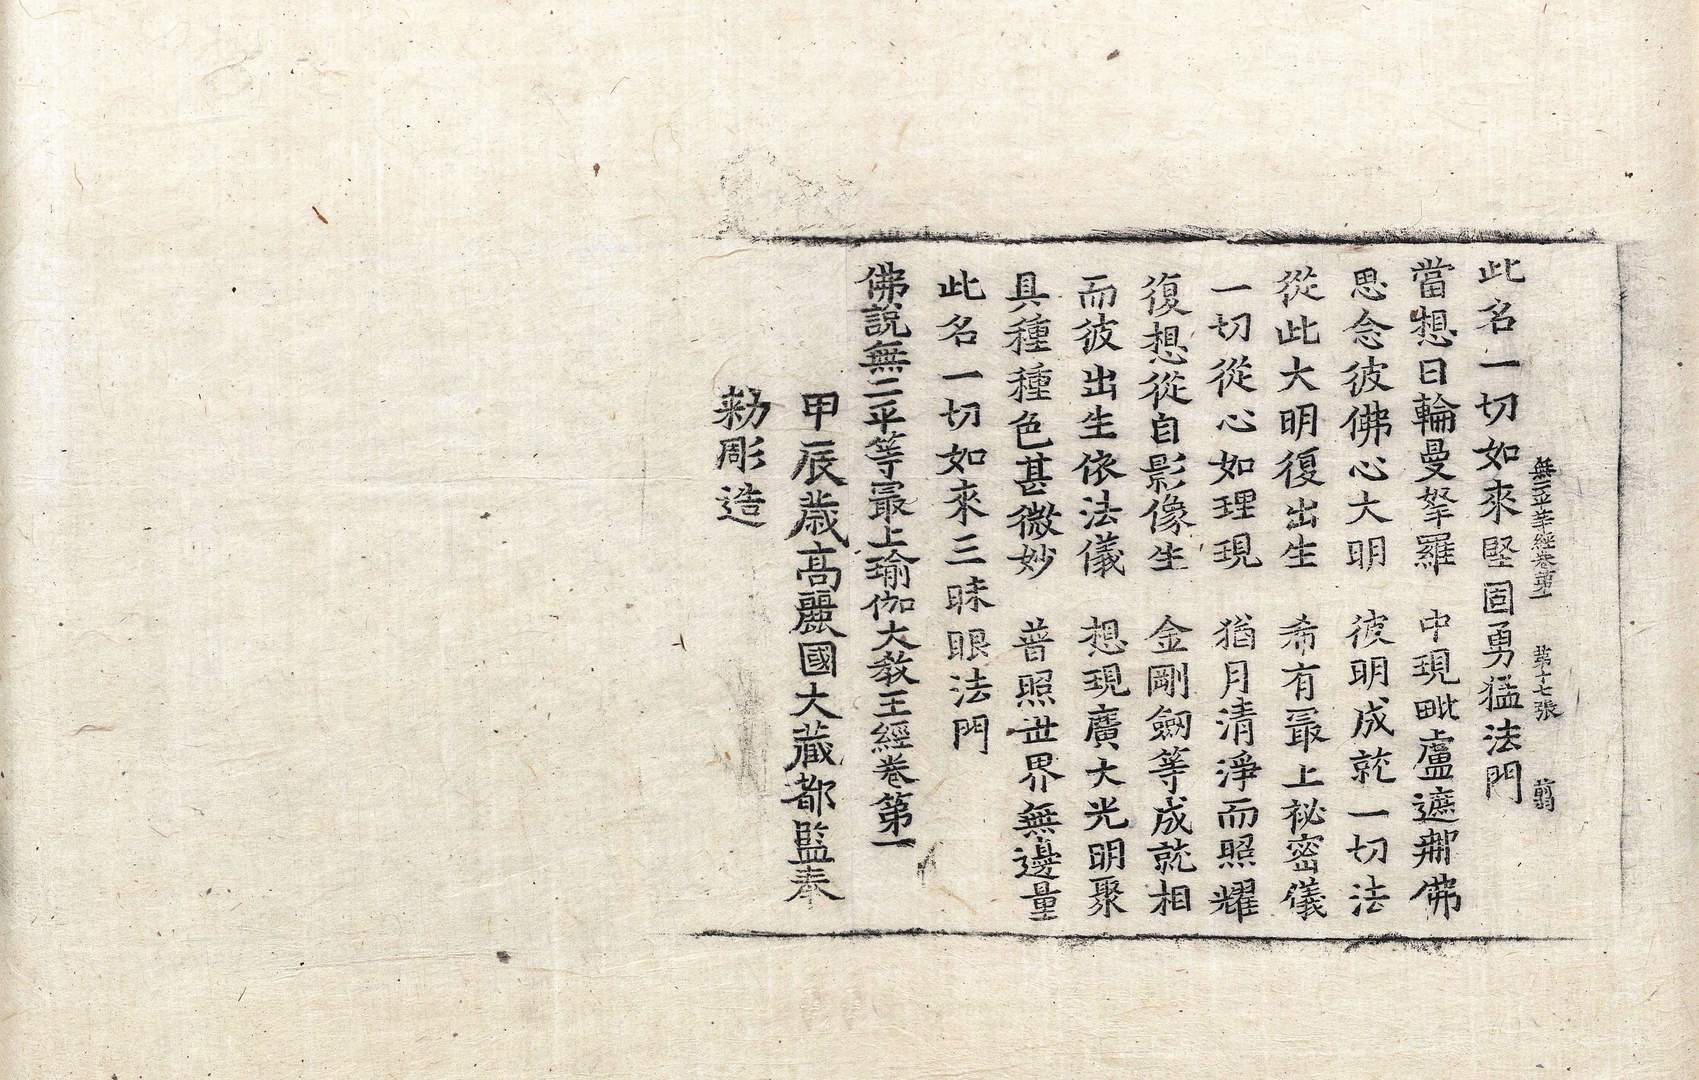 無二平等經卷第一 第十七張 翦
此名一切如來堅固勇猛法門
當想日輪曼拏羅 中現毗盧遮那佛
思念彼佛心大明 彼明成就一切法
從此大明復出生 希有最上祕密儀
一切從心如理現 猶月清淨而照耀
復想從自影像生 金剛劒等成就相
而彼出生依法儀 想現廣大光明聚
具種種色甚微妙 普照世界無邊量
此名一切如來三昧眼法門
佛說無二平等最上瑜伽大教王經卷第一
甲辰歲高麗國大藏都監奉
勑彫造